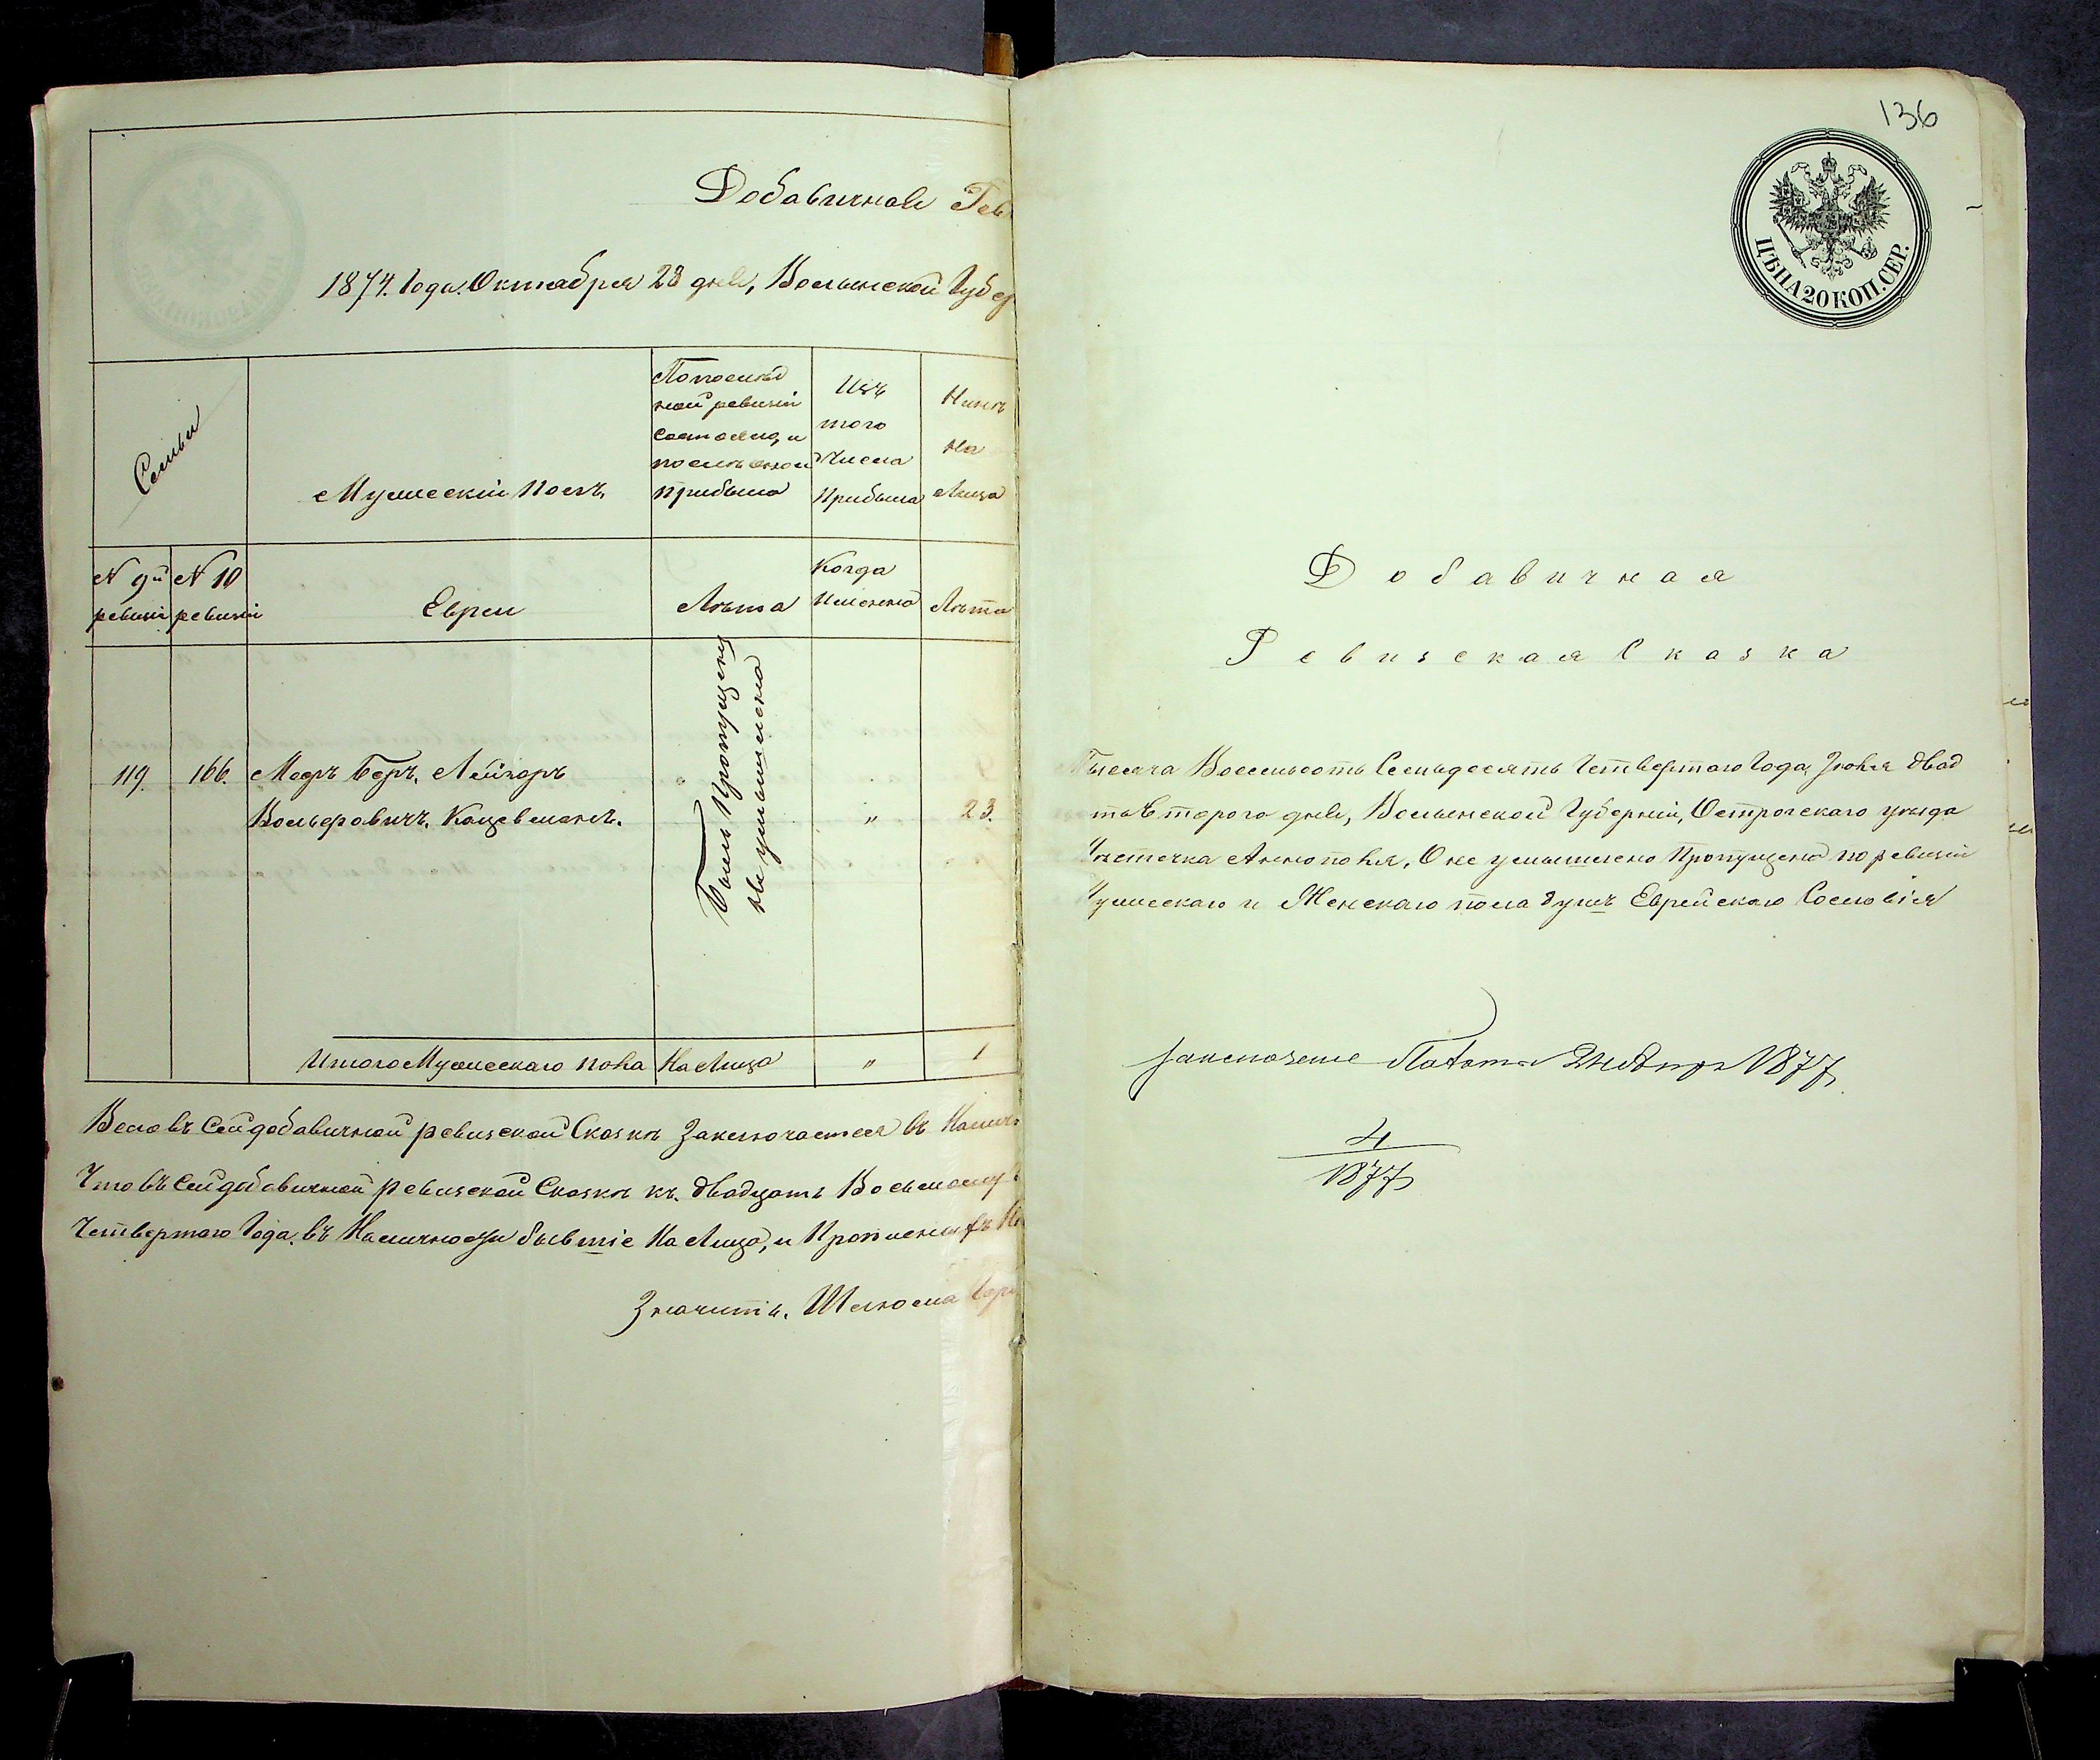 Добавичная Рев
1874. Года. Октабря 28 дня, Волынской Губер
Семьи
Мужескій полъ.
Попослѣд
ней ревизіи
состояло, и
послѣ оной
прибыло
Изъ
того
числа
прибыло
Нынѣ
на
лицо
N 9й ревизіи
N 10 ревизіи
Евреи
Лѣта
Когда
именно
Лѣта
119.
166.
Мееръ Беръ. Лейзоръ
Вольфовичъ. Кацевманъ.
Былъ Пропущенъ
не умышлено
"
23.
Итого Мужескаго пола
На Лицо
"
1
Всего въ сей добавичной ревизской Сказкѣ заключается въ Налич
Что въ сей добавичной ревизской Сказкѣ къ. двадцать Восьмому
Четвертаго Года. въ Наличности бывшіе На Лицо, и Прописных
Значитъ. Шлиома
136
ЦѢНА 20 КОП. СЕР.
Добавичная
Ревизская Сказка
Тысяча Восемьсотъ Семьдесятъ Четвертаго Года, Іюня двад
ть второго дня, Волынской Губерніи, Острогскаго уѣзда
Мѣстечка Аннополя, О не умышлено Пропущено по ревизіи
Мужескаго и Женскаго пола душъ Еврейскаго Сословія
заключение Палаты 1877
4
1877